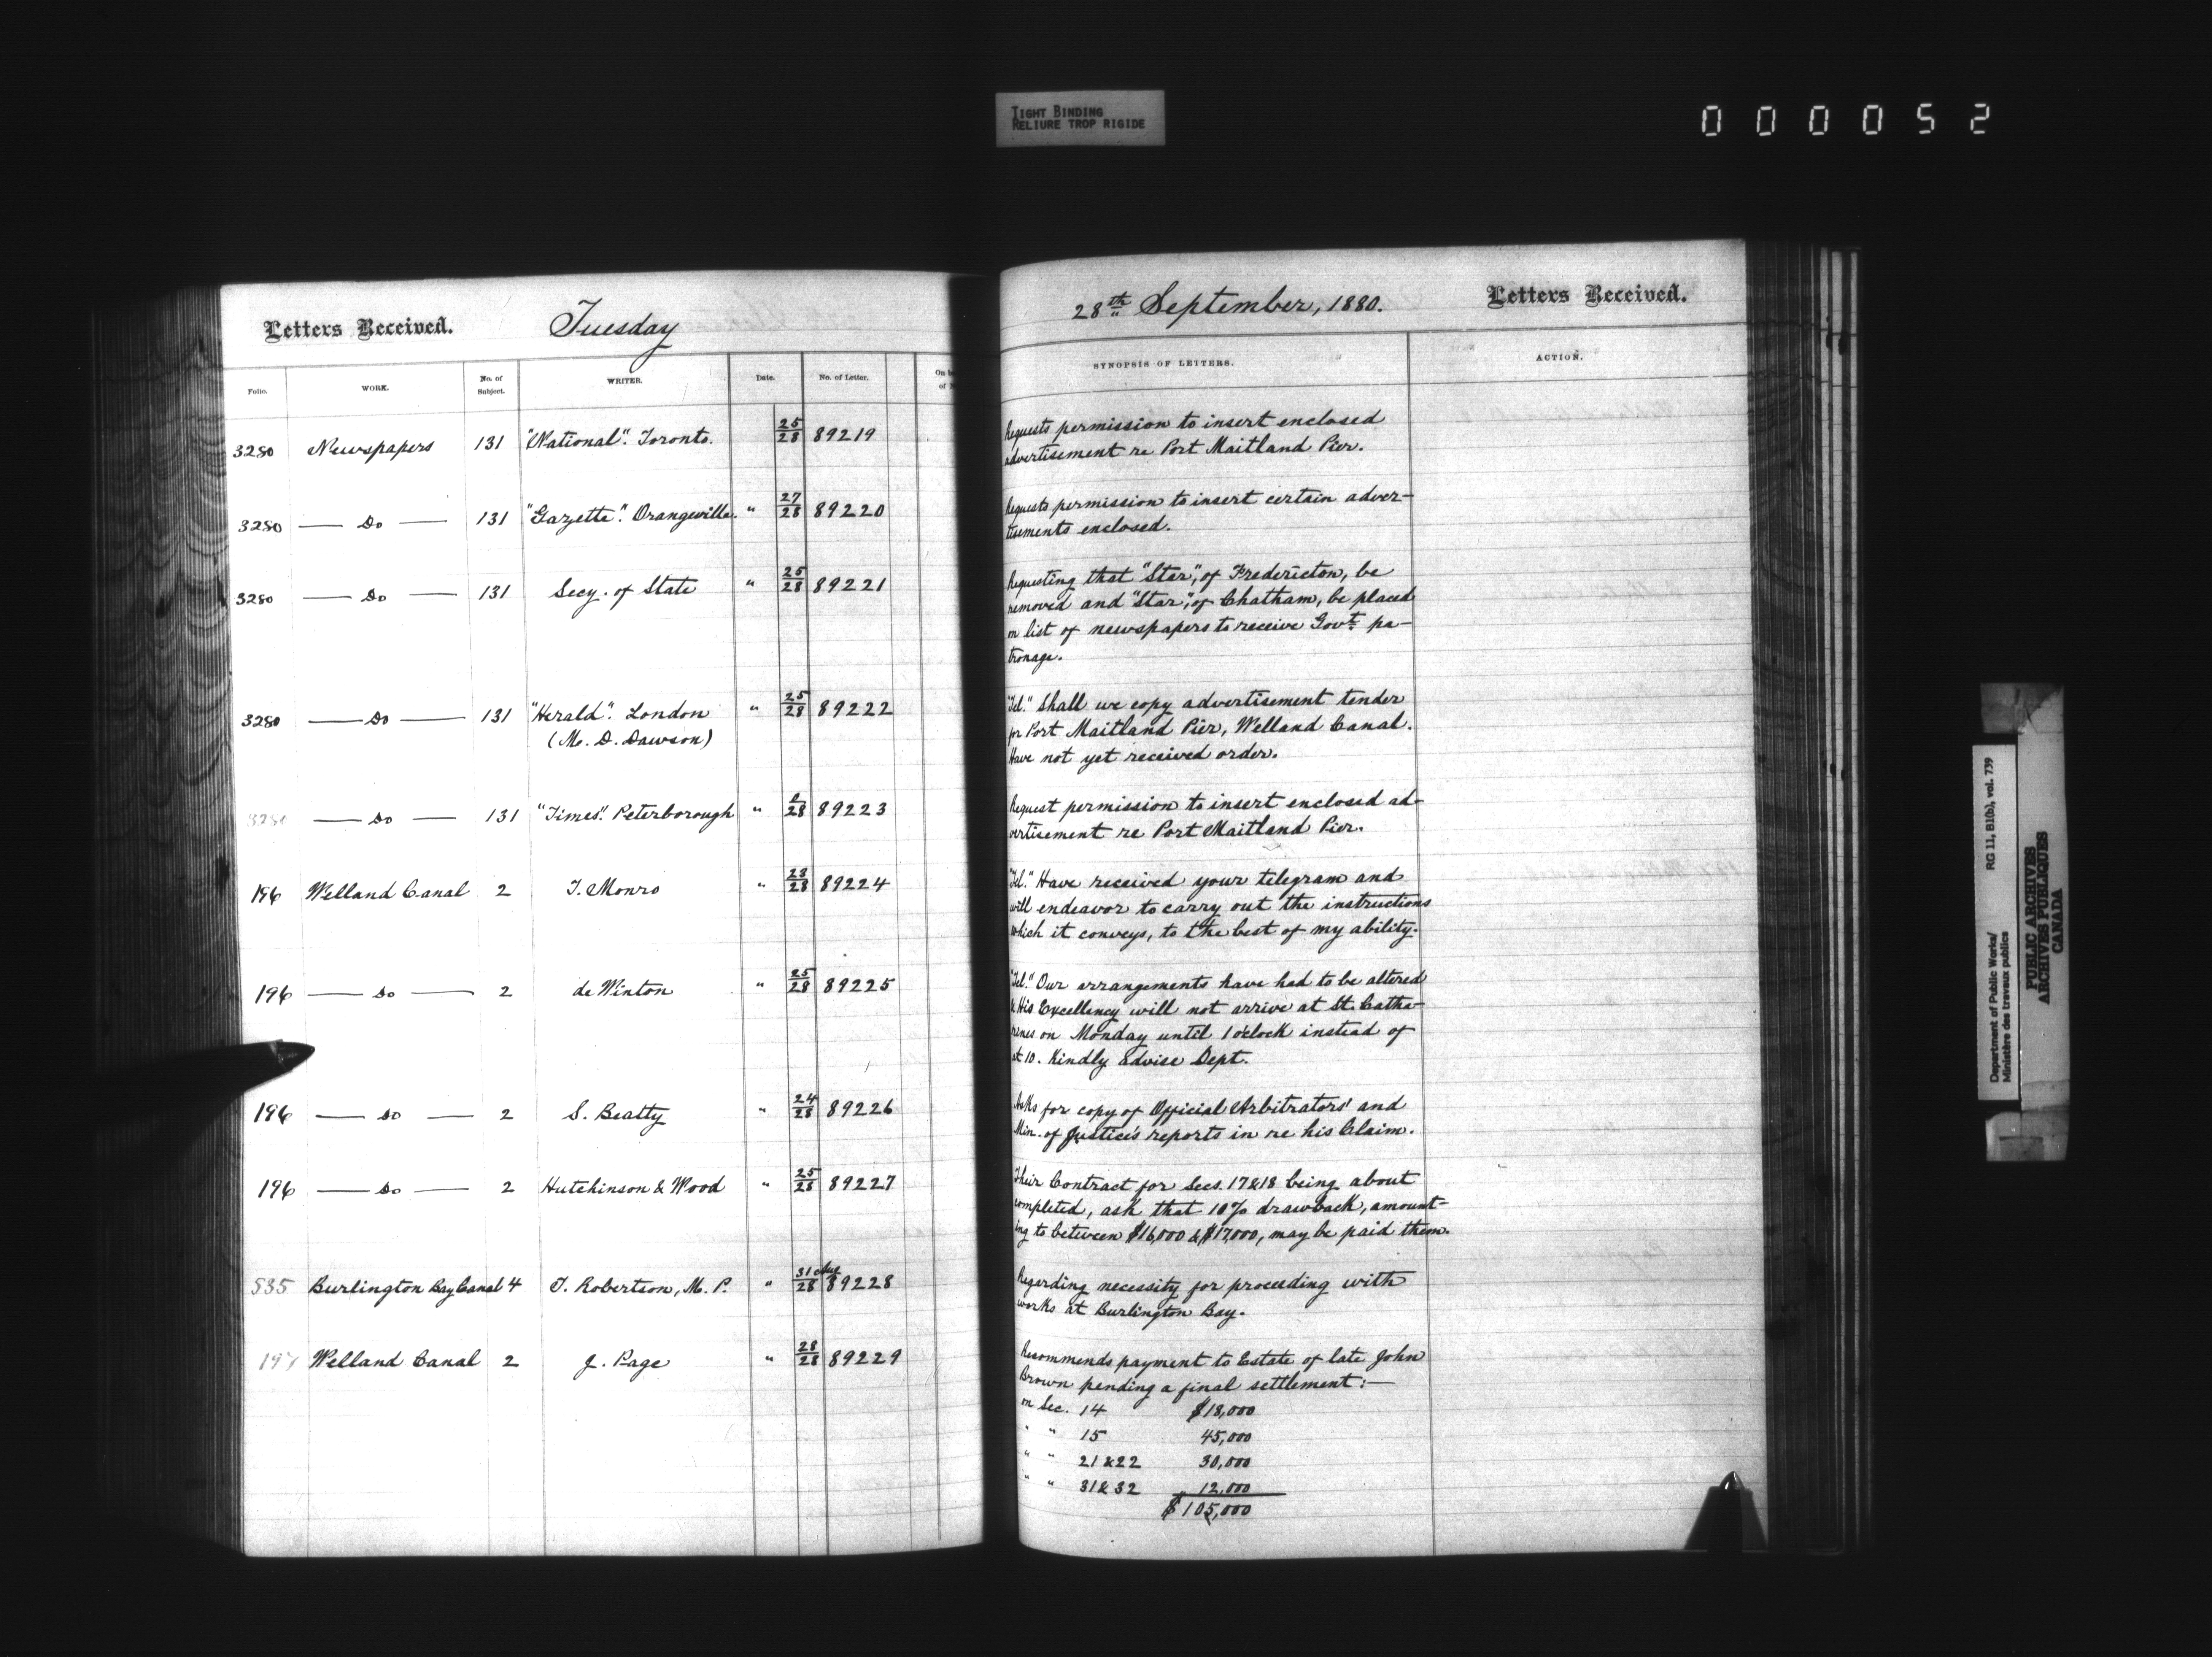 TIGHT BINDING
RELIURE TROP RIGIDE
000052
Letters Received. Tuesday
Folio. WORK. No. of Subject. WRITER. Date. No. of Letter. On
of
3280 Newspapers 131 "National". Toronto. 25/28 89219
3280 — Do — 131 "Gazette". Orangeville. " 27/28 89220
3280 — Do — 131 Secy. of State " 25/28 89221
3280 — Do — 131 "Herald". London " 25/28 89222
(M. D. Dawson)
3280 — Do — 131 "Times". Peterborough " /28 89223
196 Welland Canal 2 T. Monro " 23/28 89224
196 — Do — 2 de Winton " 25/28 89225
196 — Do — 2 S. Beatty " 24/28 89226
196 — Do — 2 Hutchinson & Wood " 25/28 89227
535 Burlington Bay Canal 4 T. Robertson, M. P. " 31 Aug/28 89228
197 Welland Canal 2 J. Page " 28/28 89229
28th September, 1880. Letters Received.
SYNOPSIS OF LETTERS. ACTION.
Requests permission to insert enclosed
advertisement re Port Maitland Pier.
Requests permission to insert certain adver-
tisements enclosed.
Requesting that "Star", of Fredericton, be
removed and "Star", of Chatham, be placed
on list of newspapers to receive Govt. pa-
tronage.
"Tel." Shall we copy advertisement tender
for Port Maitland Pier, Welland Canal.
Have not yet received order.
Request permission to insert enclosed ad-
vertisement re Port Maitland Pier.
"Tel." Have received your telegram and
will endeavor to carry out the instructions
which it conveys, to the best of my ability.
"Tel." Our arrangements have had to be altered
& His Excellency will not arrive at St. Catha-
rines on Monday until 1 o'clock instead of
at 10. Kindly advise Dept.
Asks for copy of Official Arbitrators' and
Min. of Justice's reports in re his Claim.
Their Contract for Secs. 17 & 18 being about
completed, ask that 10% drawback, amount-
ing to between $16,000 & $17,000, may be paid them.
Regarding necessity for proceeding with
works at Burlington Bay.
Recommends payment to Estate of late John
Brown pending a final settlement:—
on Sec. 14 $18,000
" " 15 45,000
" " 21 & 22 30,000
" " 31 & 32 12,000
$105,000
Department of Public Works/ RG 11, B1(b), vol. 739
Ministère des travaux publics
PUBLIC ARCHIVES
ARCHIVES PUBLIQUES
CANADA